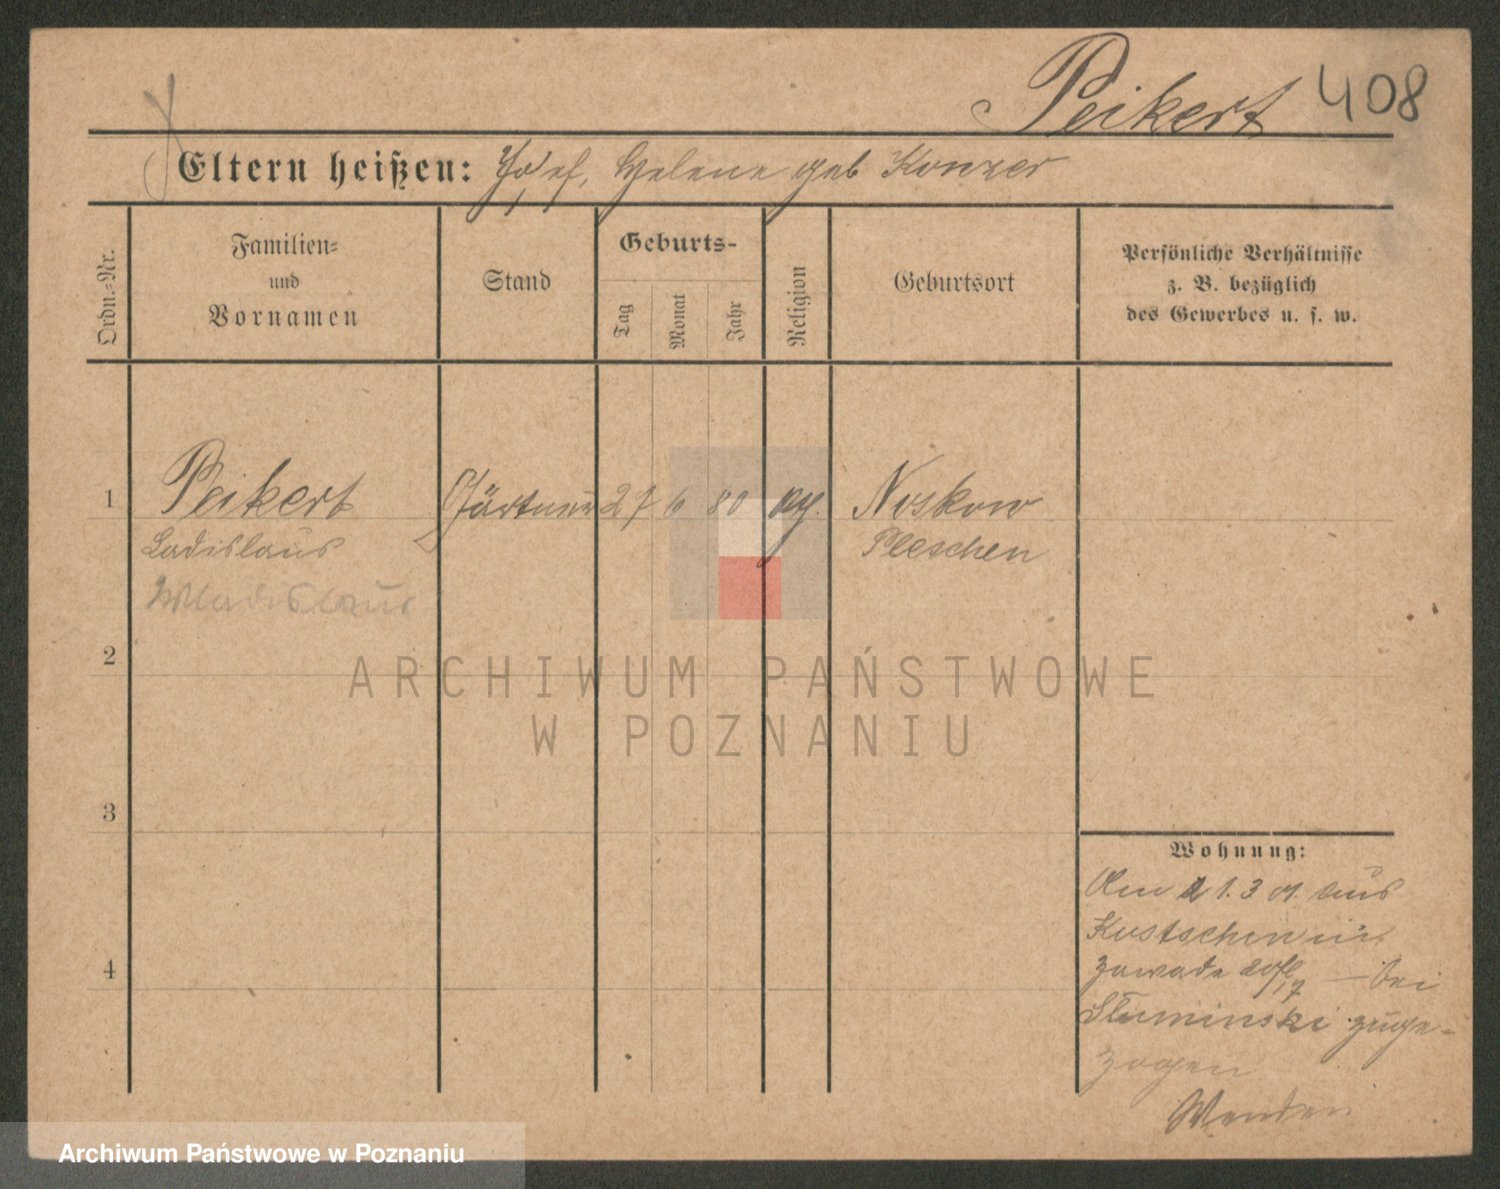 Peikert 408
Eltern heißen: Josef, Helene geb Konzer
Ordn.-Nr.
Familien-
und
Vornamen
Stand
Geburts-
Tag
Monat
Jahr
Religion
Geburtsort
Persönliche Verhältnisse
z. B. bezüglich
des Gewerbes u. s. w.
1 Peikert Gärtner 27 6 80 Noskow
Ladislaus Pleschen
Wladislaus
2
3
4
Wohnung:
Am 21. 3 01. aus
Kostschin in
Zawade bei
Sluminski zuge-
zogen
ARCHIWUM PAŃSTWOWE
W POZNANIU
Archiwum Państwowe w Poznaniu